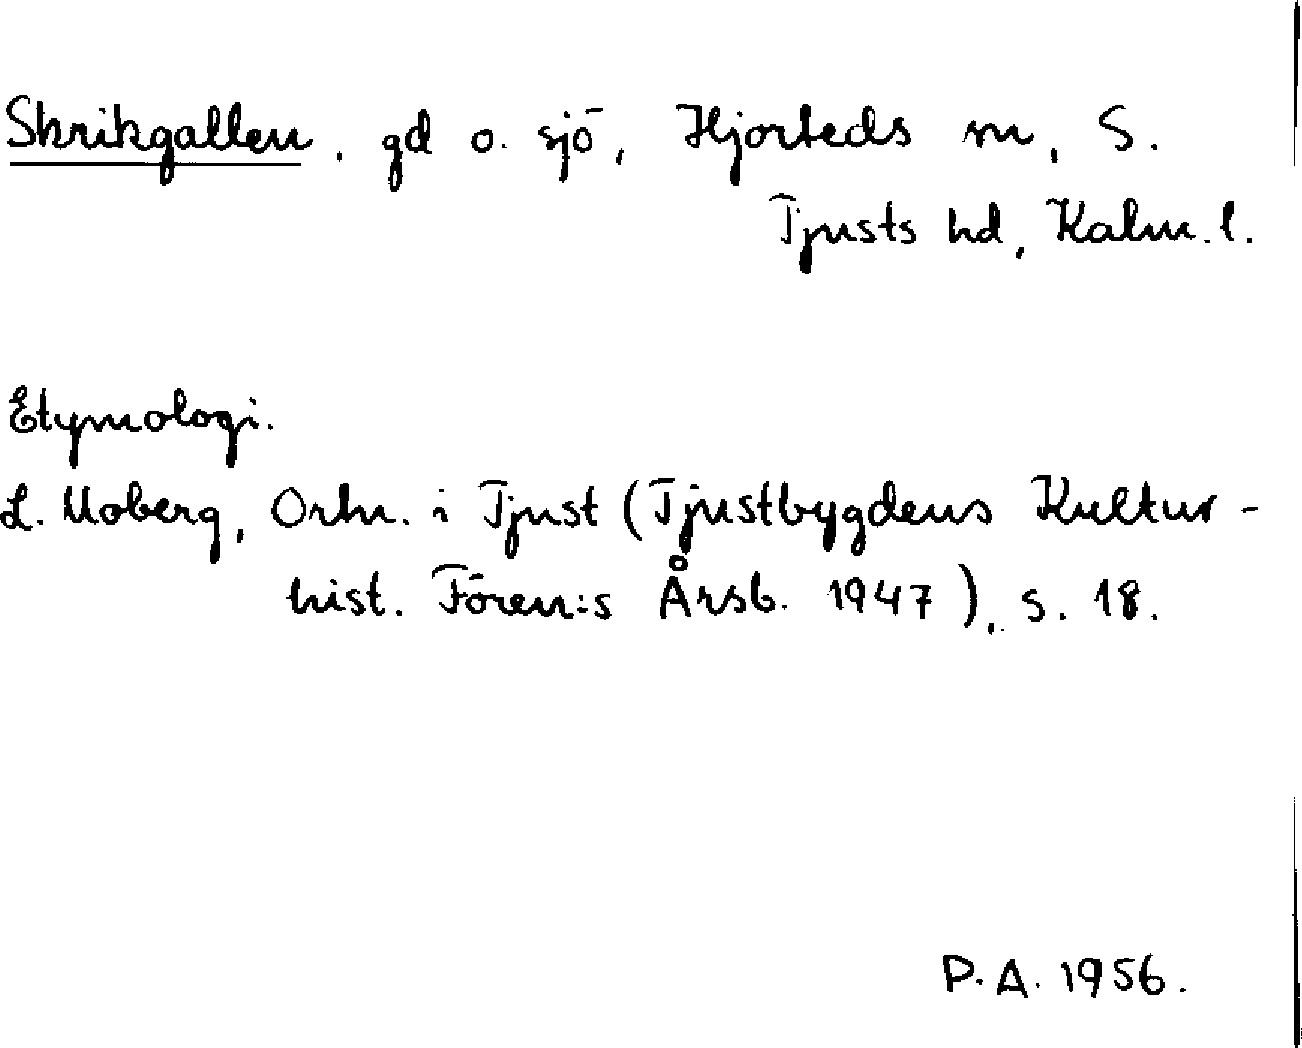 Skrikgallen, gd o. sjö, Hjorteds sn, S.
Tjusts hd, Kalm. l.
Etymologi.
L. Moberg, Ortn. i Tjust (Tjustbygdens Kultur-
hist. Fören:s Årsb. 1947), s. 18.
P.A. 1956.